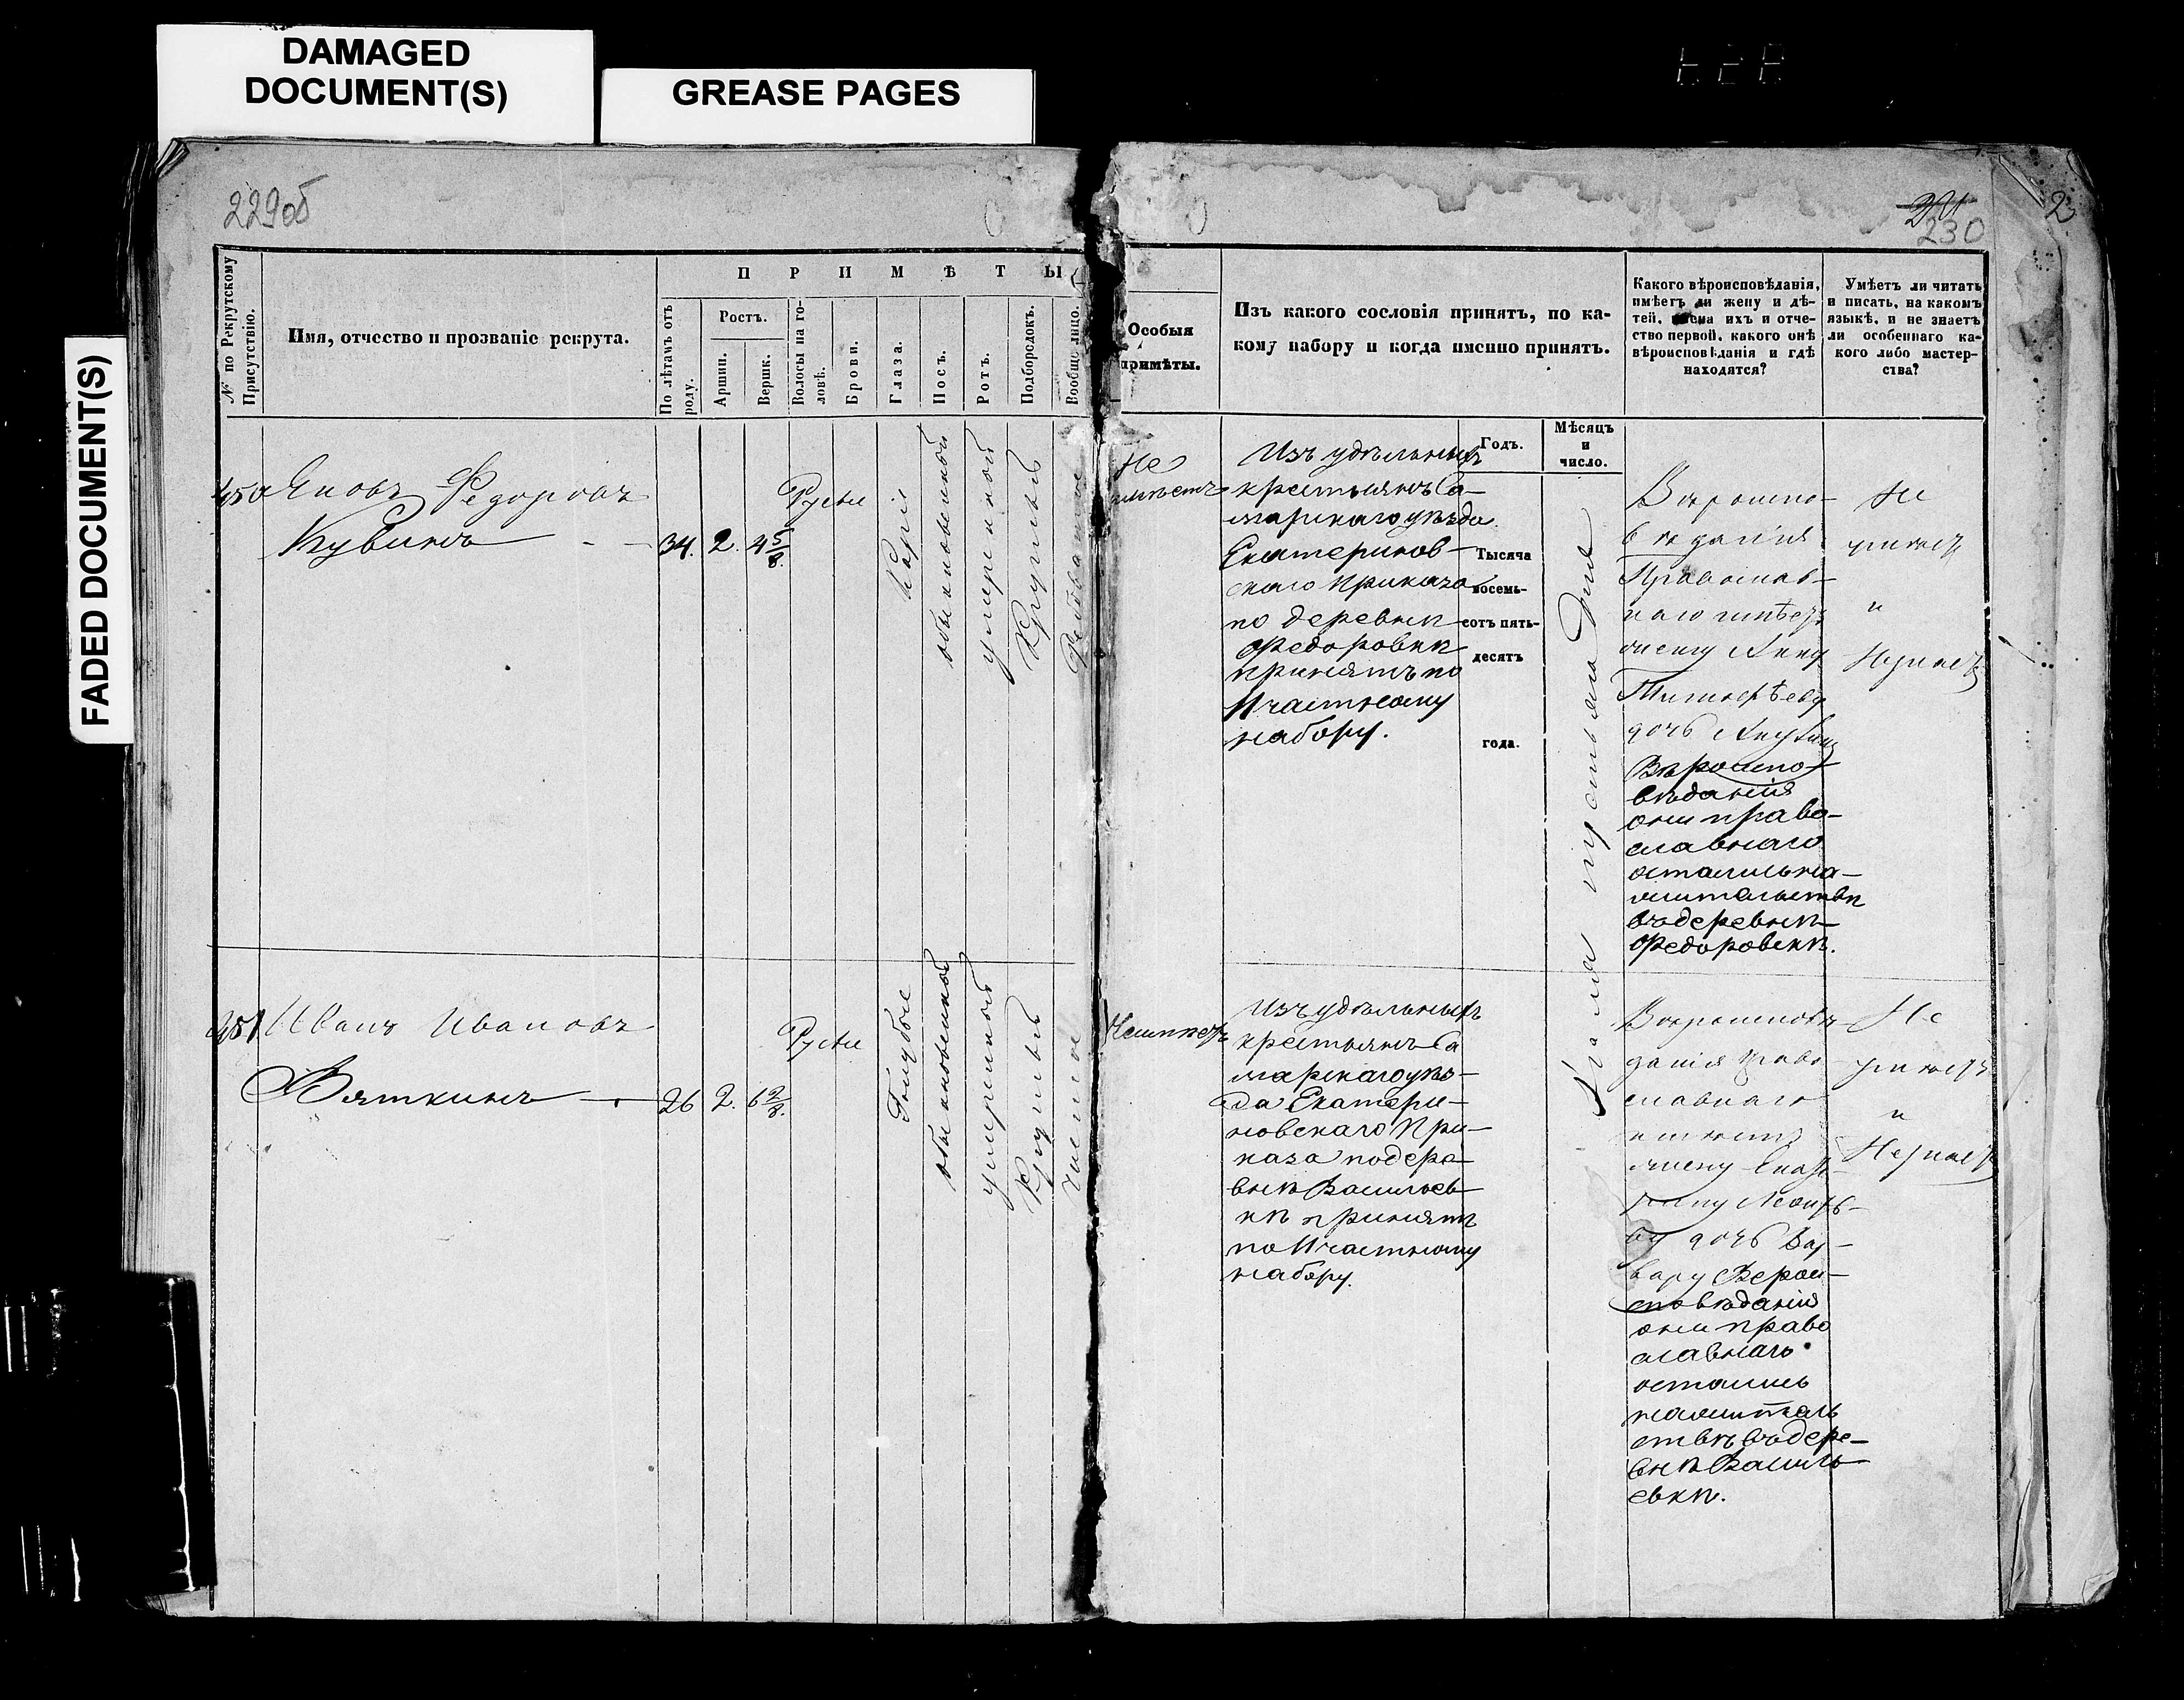 DAMAGED
DOCUMENT(S)
GREASE PAGES
FADED DOCUMENT(S)
229об
231
230
2
№ по Рекрутскому
Присутствію.
Имя, отчество и прозваніе рекрута.
ПРИМѢТЫ
По лѣтамъ отъ
роду.
Ростъ.
Аршин.
Вершк.
Волосы на го-
ловѣ.
Брови.
Глаза.
Носъ.
Ротъ.
Подбородокъ.
Вообще лицо.
Особыя
примѣты.
Изъ какого сословія принятъ, по ка-
кому набору и когда именно принятъ.
Какого вѣроисповѣданія,
имѣетъ ли жену и дѣ-
тей, имена ихъ и отче-
ство первой, какого онѣ
вѣроисповѣданія и гдѣ
находятся?
Умѣетъ ли читать
и писать, на какомъ
языкѣ, и не знаетъ
ли особеннаго ка-
кого либо мастер-
ства?
Годъ.
Мѣсяцъ
и
число.
450 Яковъ Федоровъ
34. 2. 4 5/8.
Русые
Каріе
обыкновенной
умеренной
Круглый
Не
имѣетъ
Изъ удѣльныхъ
крестьянъ Са-
марскаго уѣзда
Екатеринов-
скаго приказа
по деревнѣ
Федоровкѣ
принятъ по
частному
набору.
Тысяча
восемь-
сотъ пять-
десятъ
года.
Вѣроиспо-
вѣданія
Православ-
наго имѣетъ
жену Анну
дочь
Вѣроиспо-
вѣданія
они право-
славнаго
остались на
жительствѣ
въ деревнѣ
Федоровкѣ.
Не
умѣетъ
и
451 Иванъ Ивановъ
Вяткинъ
26 2. 6 2/8.
Русые
Голубые
обыкновенной
умеренной
Круглый
чистое
Неимѣетъ
Изъ удѣльныхъ
крестьянъ Са
марскаго уѣз-
да Екатери-
новскаго При-
каза по дере-
внѣ Васильев
кѣ принятъ
по частному
набору.
Вѣроисповѣ-
данія право
славнаго
имѣетъ
жену Екате-
рину
дочь Вар-
вару Верои-
сповѣданія
они право
славнаго
остались
на житель
ствѣ въ дере-
внѣ Василь
евкѣ.
Не
умѣетъ
и